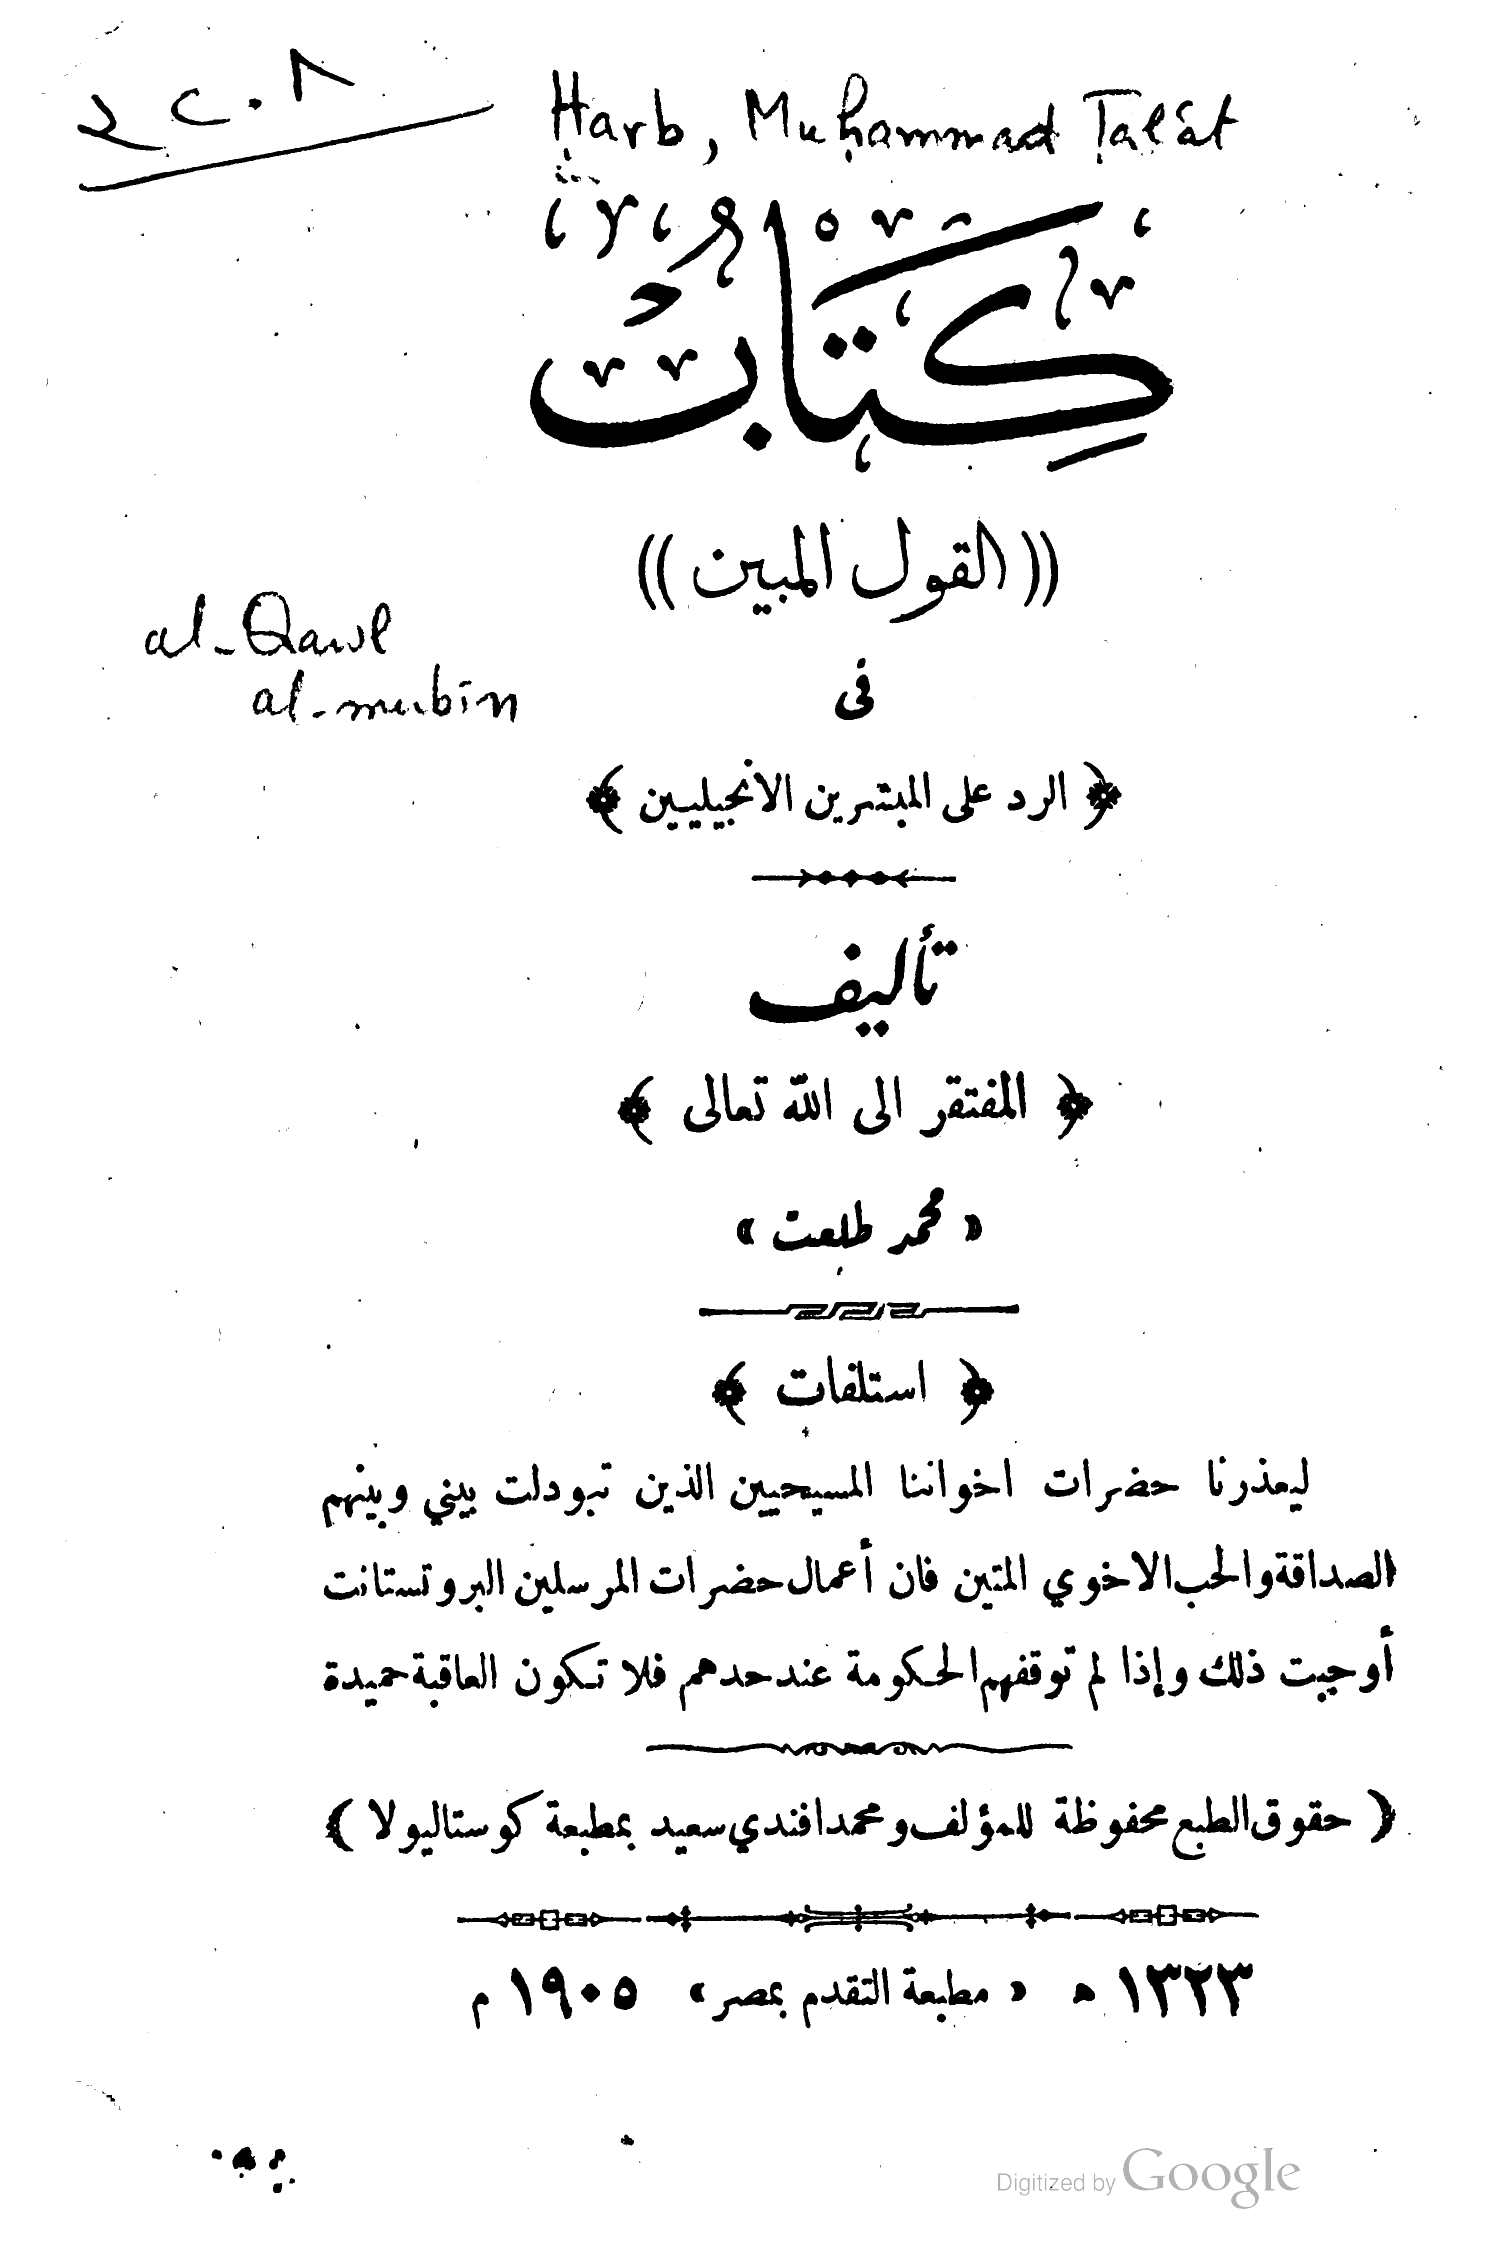 Harb, Muḥammad Ṭalʿat
كِتَابُ
(( القول المبين ))
al-Qawl
al-mubīn
فى
﴿ الرد على المبشرين الانجيليين ﴾
تأليف
﴿ المفتقر الى اللّه تعالى ﴾
« محمد طلعت »
﴿ استلفات ﴾
ليعذرنا حضرات اخواننا المسيحيين الذين تبودلت بيني وبينهم
الصداقة والحب الاخوي المتين فان أعمال حضرات المرسلين البروتستانت
أوجبت ذلك وإذا لم توقفهم الحكومة عند حدهم فلا تكون العاقبة حميدة
( حقوق الطبع محفوظة للمؤلف ومحمد افندي سعيد بمطبعة كوستاليولا )
١٣٢٣ ه « مطبعة التقدم بمصر » ١٩٠٥ م
Digitized by Google